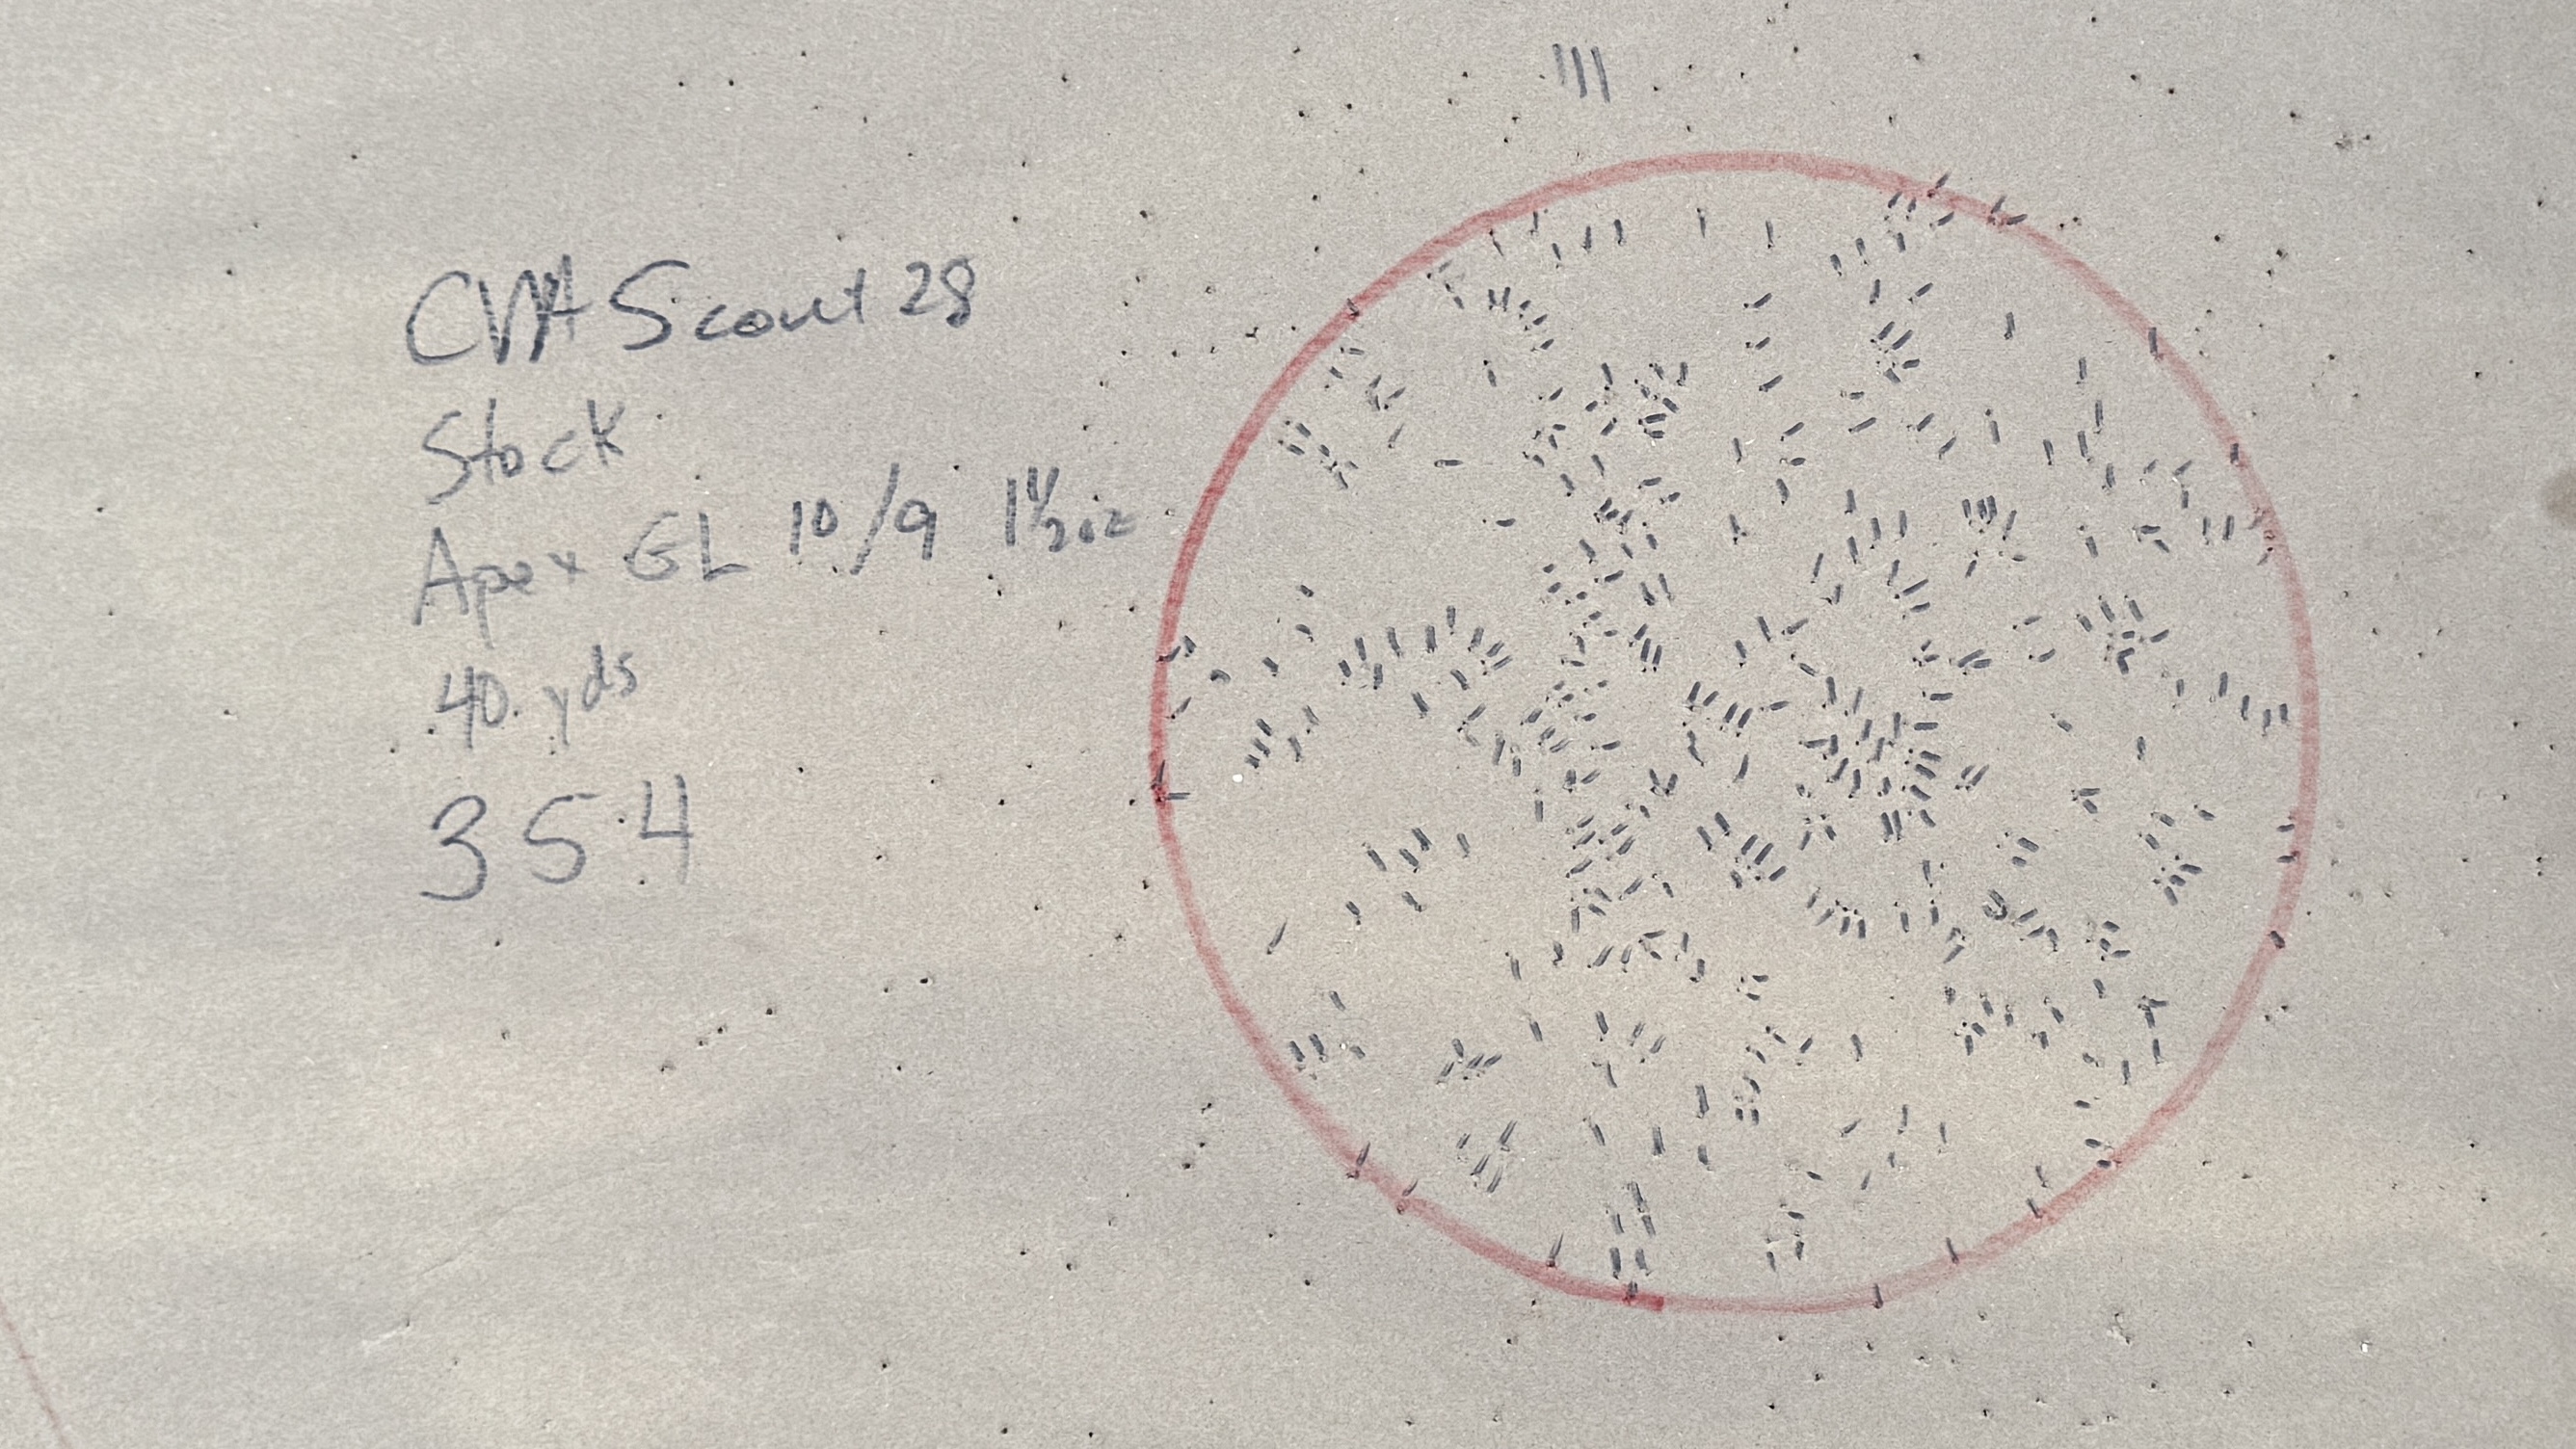 |||
CVA Scout 28
Stock
Apex GL 10/9 1 1/2 oz
40 yds
354